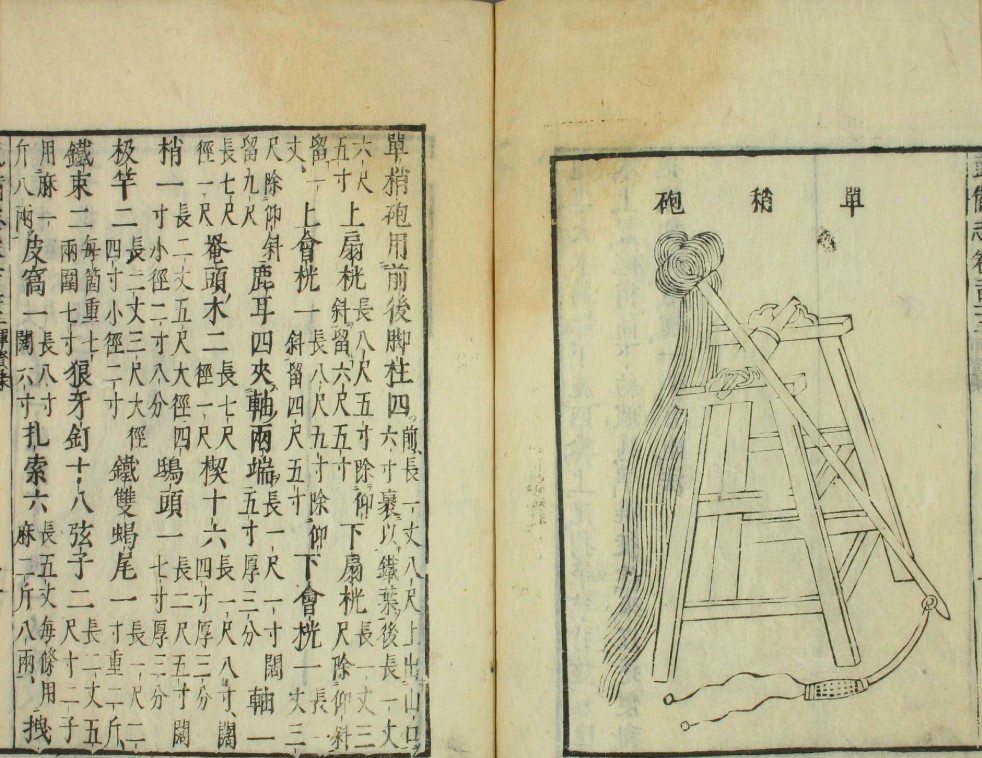 單稍砲
單梢砲用前後脚柱四前長一丈八尺上出山口六寸裹以鐵葉後長一丈
六尺五寸上扇桄長八尺五寸除仰斜留六尺五寸下扇桄長一丈三尺除仰斜
留一丈上會桄一長八尺九寸除仰斜留四尺五寸下會桄一長一丈三
尺除仰斜留九尺鹿耳四夾軸兩端長一尺一寸闊五寸厚三分軸一
長七尺徑一尺罨頭木二長七尺徑一尺楔十六長一尺八寸闊四寸厚三分
梢一長二丈五尺大徑四寸小徑二寸八分鴟頭一長二尺五寸闊七寸厚三分
极竿二長二丈三尺大徑四寸小徑二寸鐵雙蝎尾一長一尺二寸重二斤
鐵束二每箇重七兩圍七寸狼牙釘十八弦子二長二丈五尺寸二子
用麻一斤八兩皮窩一長八寸闊六寸扎索六長五丈每條用麻二斤八兩拽